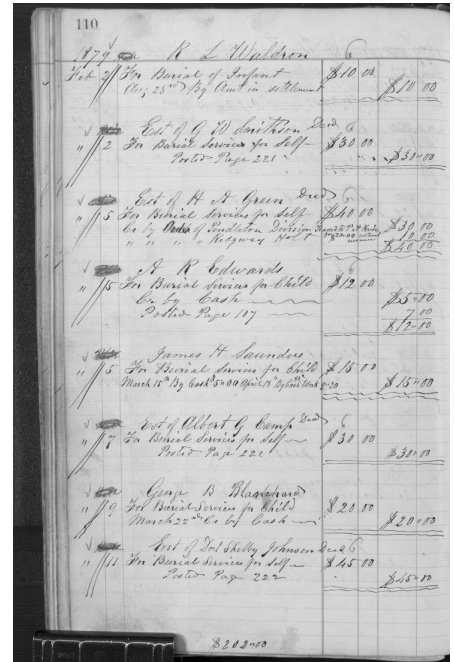 110
1879 R L Waldron 6
Feb 2 For Burial of Infant $10 00
Aug 23rd By Amt in settlement $10 00
Est of G W Smithson Decd 6
" 2 For Burial Services for Self $30 00
Posted Page 221 $30 00
Est of H A Green Decd 6
" 5 For Burial Services for Self $40 00
Cr by of Pendleton Division $30 00
" " " " Ridgway 10 00
$40 00
A R Edwards 6
" 5 For Burial Services for Child $12 00
Cr by Cash $5 00
Posted Page 107 7 00
$12 00
James H Saunders
" 5 For Burial Services for Child $15 00
March 15th By Cash 5 00 April $15 00
Est of Albert G Camp Decd 6
" 7 For Burial Services for Self $30 00
Posted Page 221 $30 00
George B Blanchard
" 9 For Burial Services for Child $20 00
March 22nd Cr by Cash $20 00
Est of Shelby Johnson Decd 6
" 11 For Burial Services for Self $45 00
Posted Page 222 $45 00
$202 00